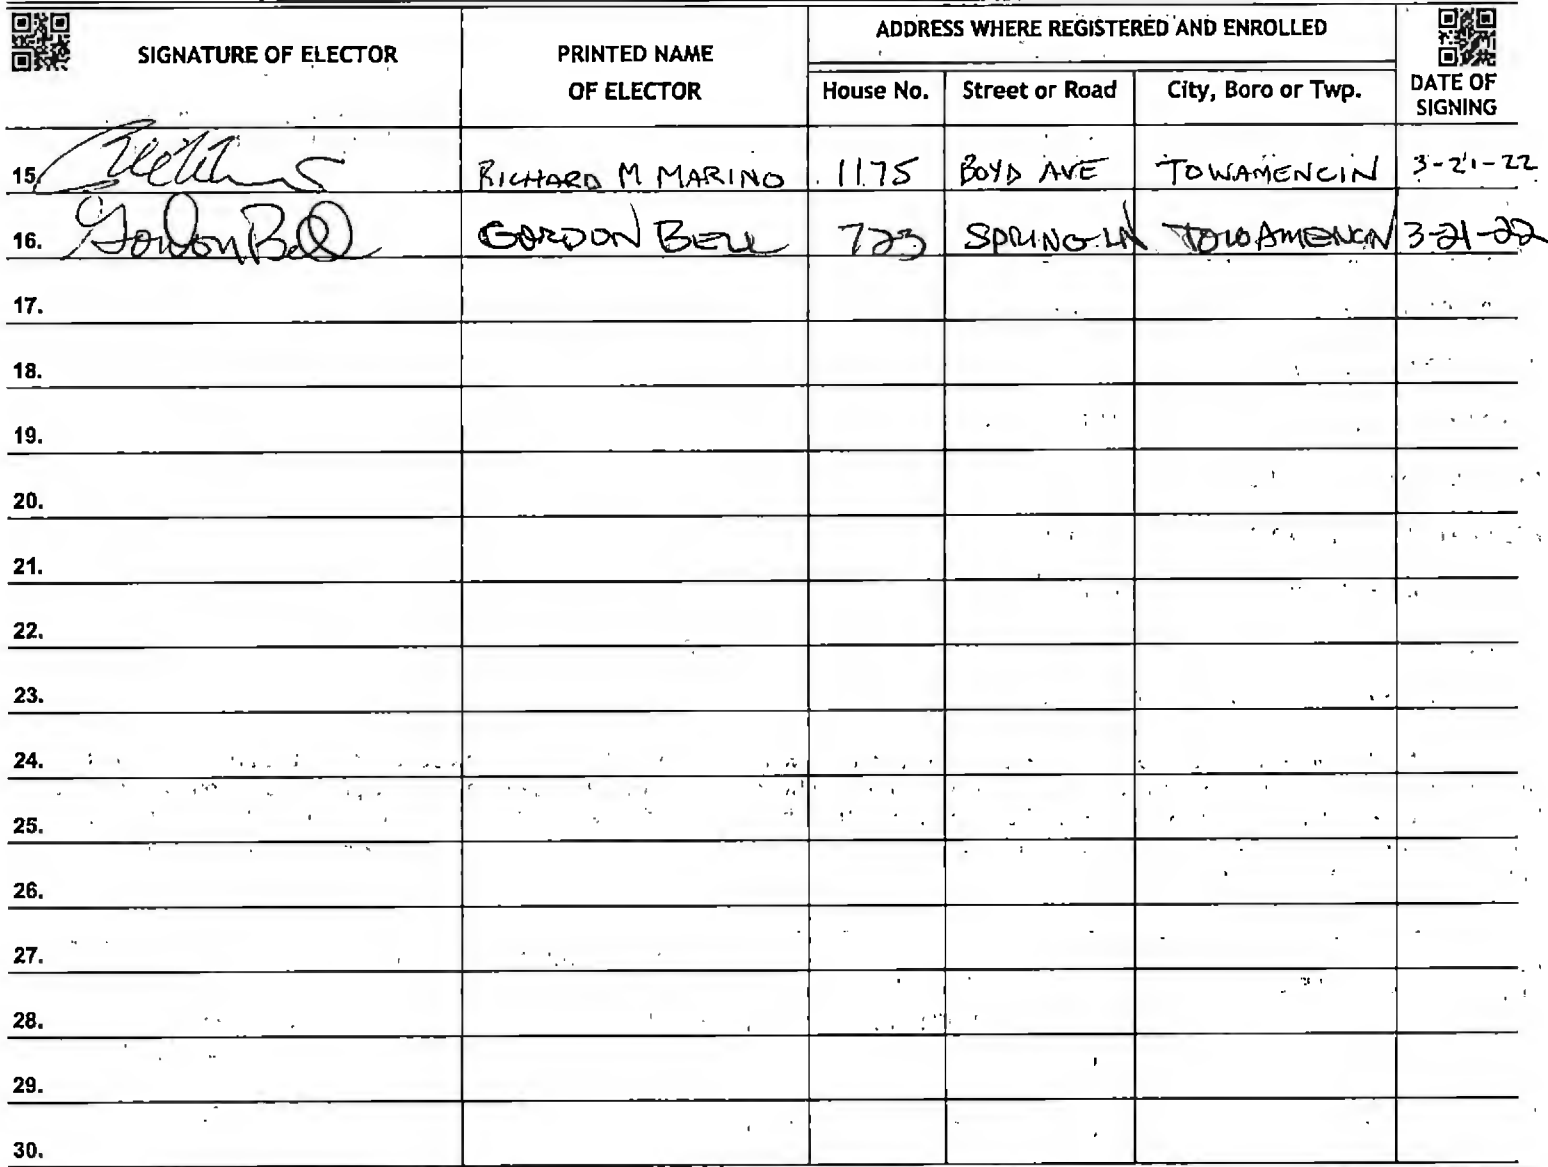 SIGNATURE OF ELECTOR PRINTED NAME OF ELECTOR ADDRESS WHERE REGISTERED AND ENROLLED
House No. Street or Road City, Boro or Twp. DATE OF SIGNING
15. RICHARD M MARINO 1175 BOYD AVE TOWAMENCIN 3-21-22
16. Gordon Bell GORDON BELL 723 SPRING LN TOWAMENCIN 3-21-22
17.
18.
19.
20.
21.
22.
23.
24.
25.
26.
27.
28.
29.
30.